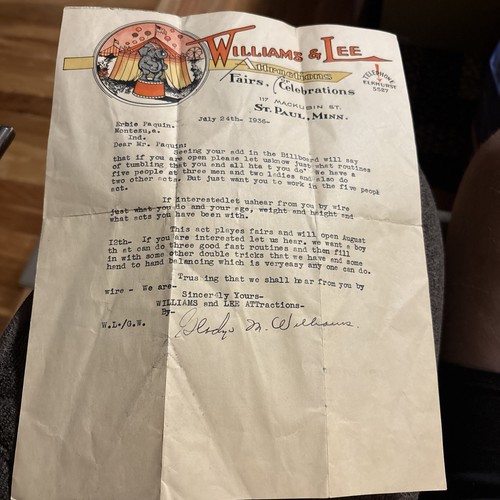 WILLIAMS & LEE
Attractions
Fairs, Celebrations
TELEPHONE
ELKHURST
5527
117 MACKUBIN ST.
ST. PAUL, MINN.
July 24th- 1936-
Erbie Paquin.
Montezu,a.
Ind.
Dear Mr. Paquin:
Seeing your add in the Billboard will say
that if you are open please let usknow just what routines
of tumbling that you end all hta t you do. We have a
five people act three men and two ladies and also do
two other acts. But just want you to work in the five people
act.
If interestedlet ushear from you by wire
just what you do and your age, weight and height and
what acts you have been with.
This act playes fairs and will open August
12th- If you are interested let us hear. we want a boy
th at can do three good fast routines and then fill
in with some other double tricks that we have end some
hand to hand balancing which is veryeasy any one can do.
Trusing that we shall hear from you by
wire - We are-
Sincerdly Yours-
WILLIAMS and LEE ATTractions-
By-
W.L./G.W. Gladys M. Williams.